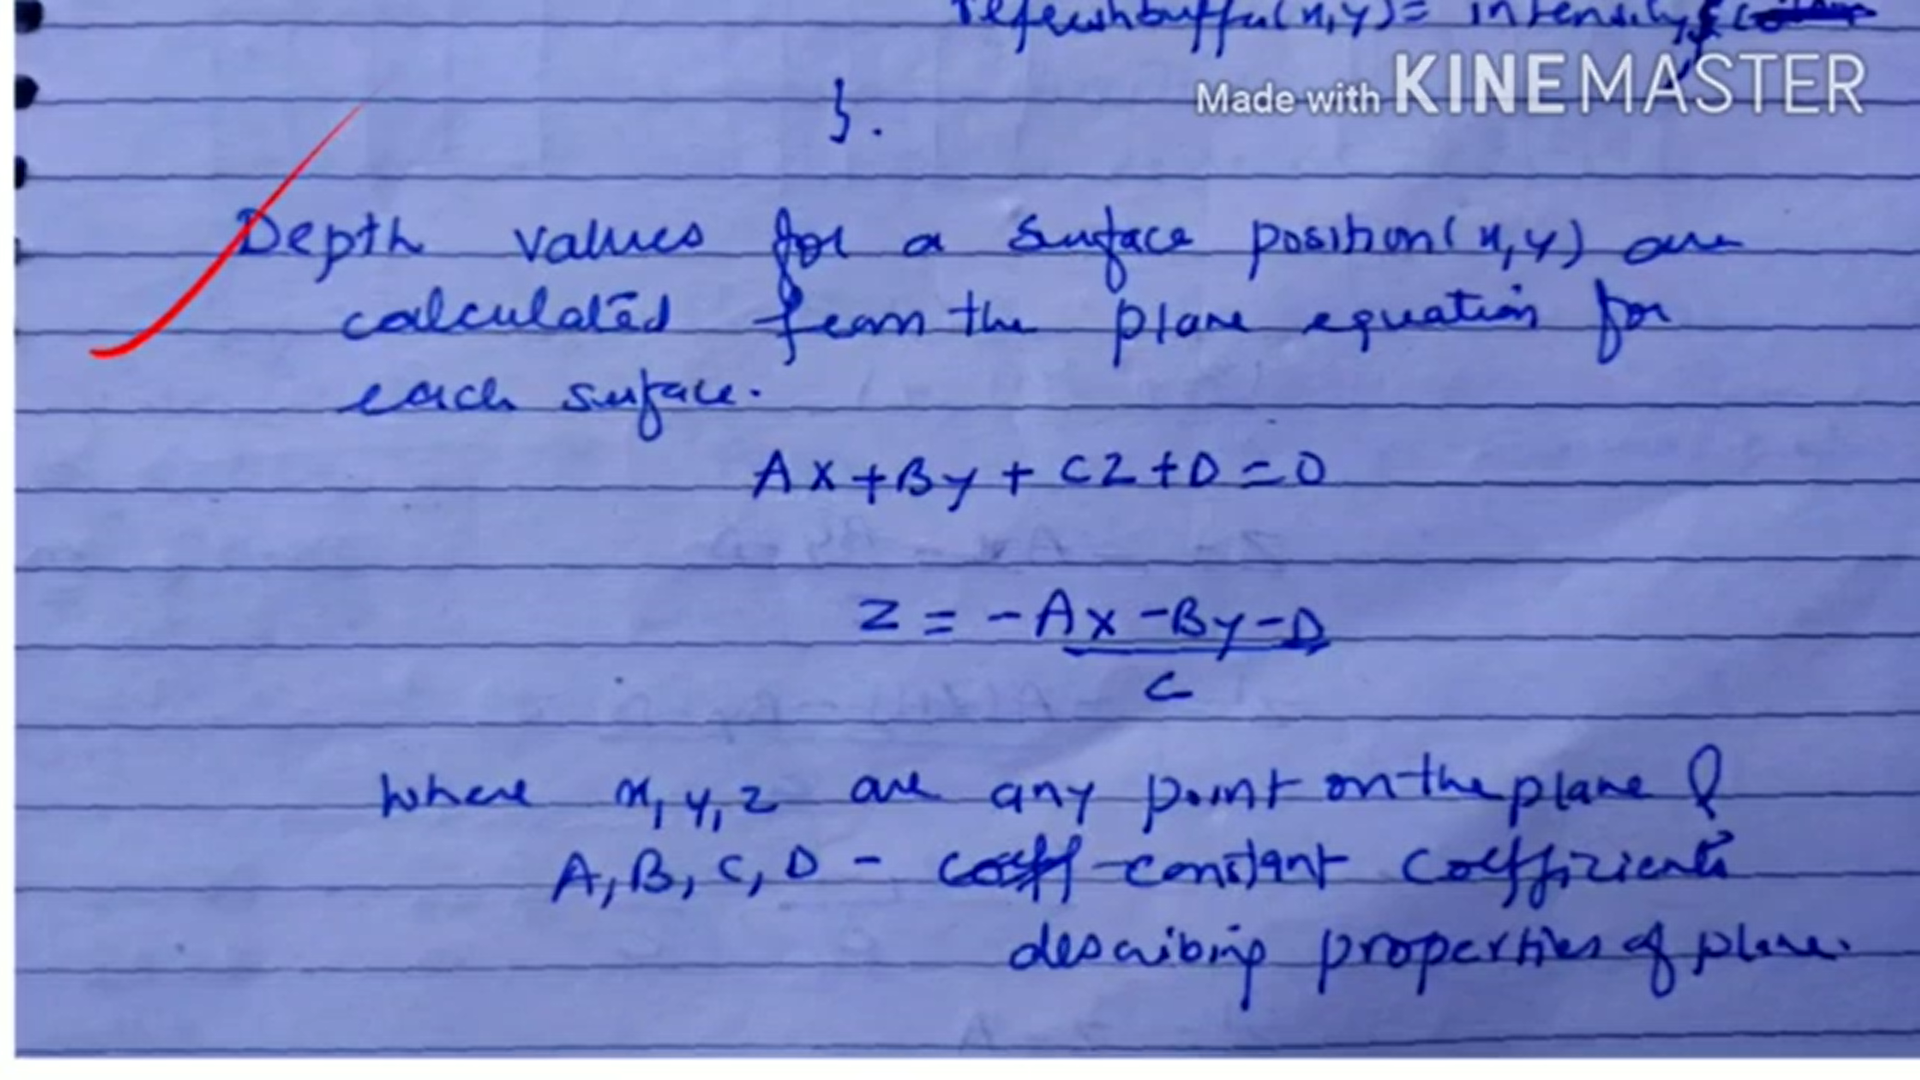 refreshbuffer(x,y) = intensity
Made with KINEMASTER
}.
Depth values for a surface position(x,y) are
calculated from the plane equation for
each surface.
Ax+By+CZ+D=0
Z = -Ax-By-D
C
where x,y,z are any point on the plane &
A,B,C,D - constant coefficients
describing properties of plane.